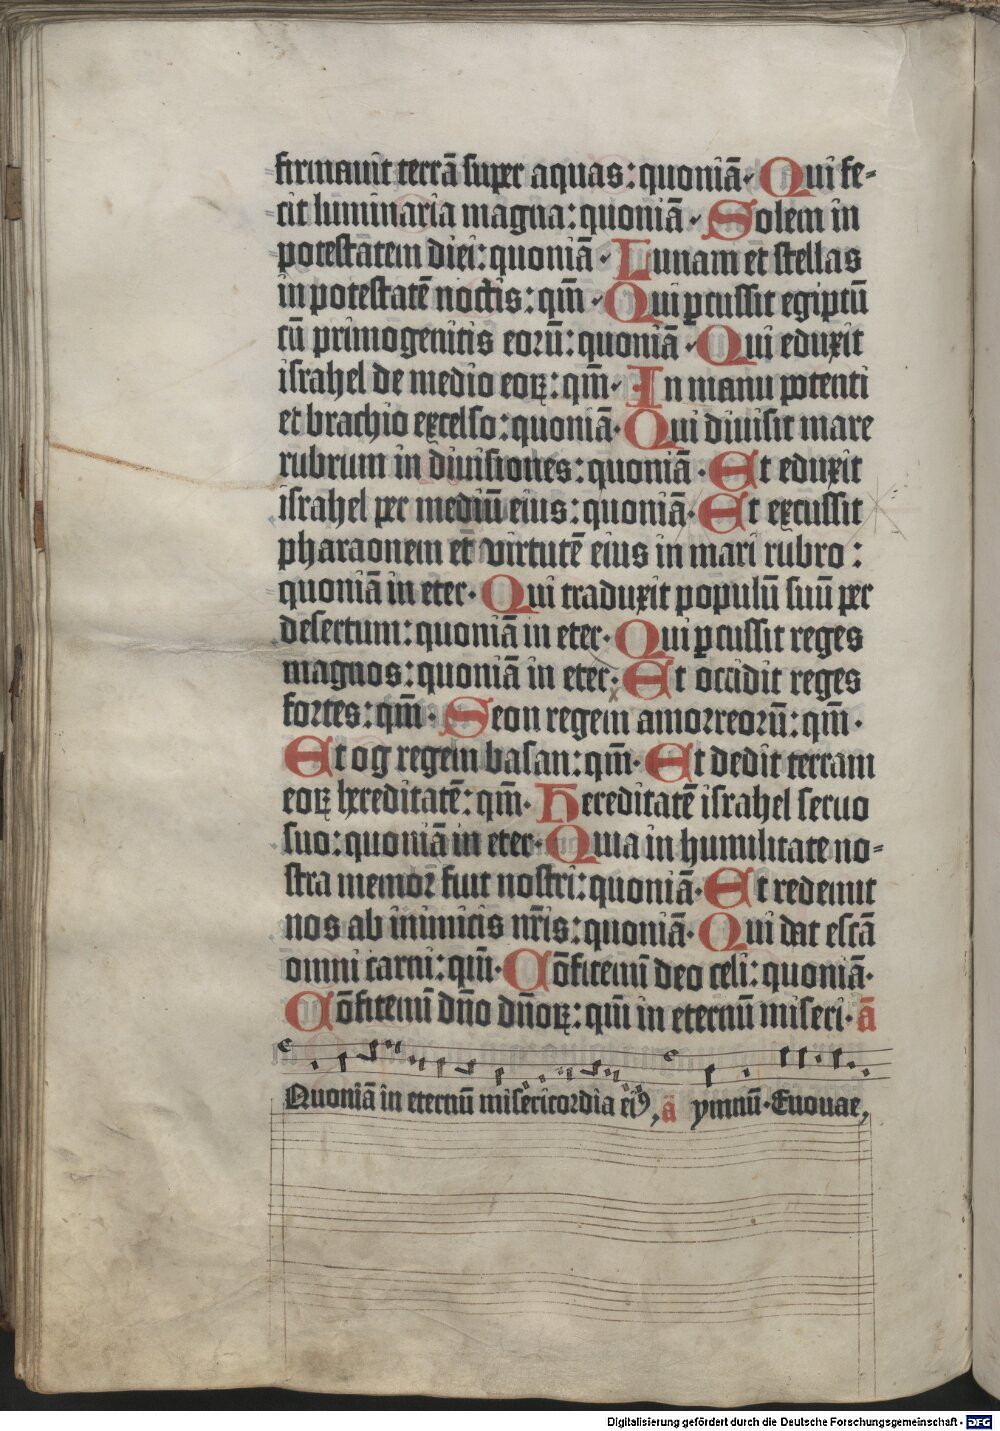 firmauit terrā super aquas: quoniā· Qui fe-
cit luminaria magna: quoniā· Solem in
potestatem diei: quoniā· Lunam et stellas
in potestatē noctis: qm̄· Qui ꝑcussit egiptū
cū primogenitis eorū: quoniā· Qui eduxit
israhel de medio eoꝝ: qm̄· In manu potenti
et brachio excelso: quoniā· Qui diuisit mare
rubrum in diuisiones: quoniā· Et eduxit
israhel per mediū eius: quoniā· Et excussit
pharaonem et virtutē eius in mari rubro:
quoniā in eter· Qui traduxit populū suū per
desertum: quoniā in eter· Qui ꝑcussit reges
magnos: quoniā in eter· Et occidit reges
fortes: qm̄· Seon regem amorreorū: qm̄·
Et og regem basan: qm̄· Et dedit terram
eoꝝ hereditatē: qm̄· Hereditatē israhel seruo
suo: quoniā in eter· Quia in humilitate no-
stra memor fuit nostri: quoniā· Et redemit
nos ab inimicis nr̄is: quoniā· Qui dat escā
omni carni: qm̄· Cōfitemī deo celi: quoniā·
Cōfitemī dn̄o dn̄oꝝ: qm̄ in eternū miseri· ā
Quoniā in eternū misericordia eiꝰ, ā ymnū· Euouae,
Digitalisierung gefördert durch die Deutsche Forschungsgemeinschaft - DFG